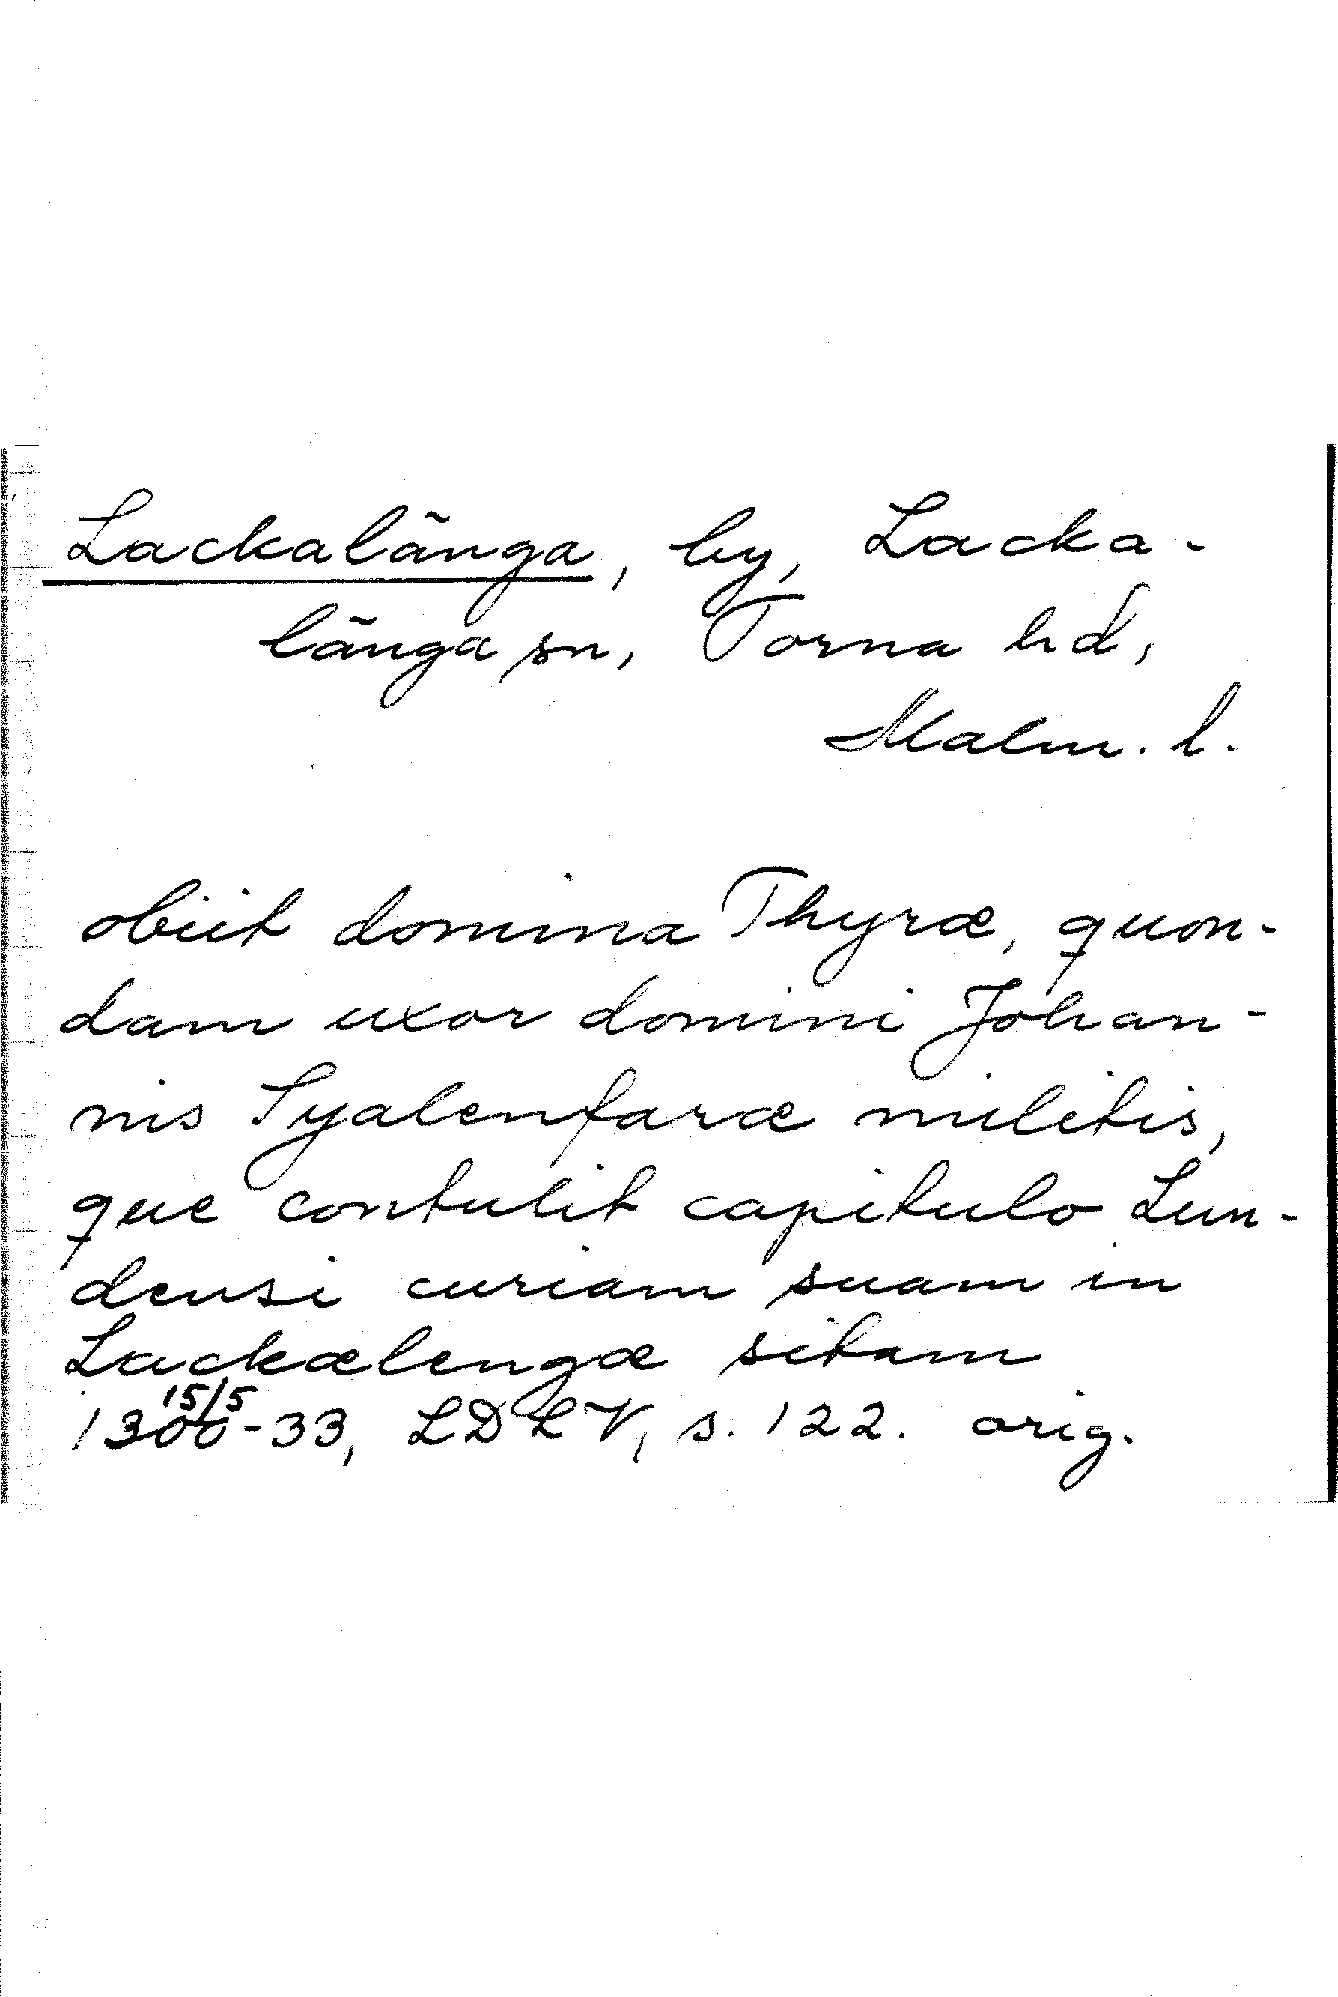 Lackalänga, by, Lacka-
länga sn, Torna hd,
Malm. l.
obiit domina Thyræ, quon-
dam uxor domini Johan-
nis Syalenfaræ militis,
que contulit capitulo Lun-
densi curiam suam in
Lackælengæ sitam
15/5
1300-33, LDLV, s. 122. orig.